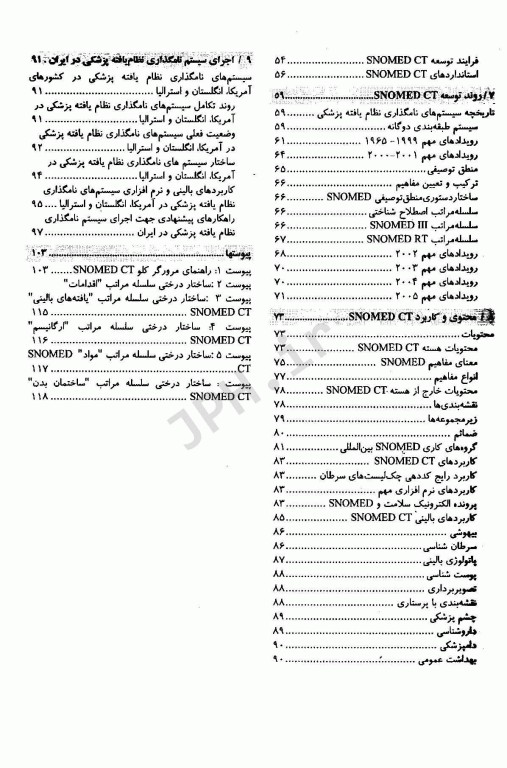 فرایند توسعه SNOMED CT ۵۴
استانداردهای SNOMED CT ۵۶
۷/ روند توسعه SNOMED CT ۵۹
تاریخچه سیستم‌های نامگذاری نظام یافته پزشکی ۵۹
سیستم طبقه‌بندی دوگانه ۵۹
رویدادهای مهم ۱۹۹۹- ۱۹۶۵ ۶۱
رویدادهای مهم ۲۰۰۱-۲۰۰۰ ۶۴
منطق توصیفی ۶۵
ترکیب و تعیین مفاهیم ۶۶
ساختاردستوری‌منطق‌توصیفی SNOMED ۶۶
سلسله‌مراتب اصطلاح شناختی ۶۶
سلسله‌مراتب SNOMED III ۶۶
سلسله‌مراتب SNOMED RT ۶۷
رویدادهای مهم ۲۰۰۲ ۶۸
رویدادهای مهم ۲۰۰۳ ۷۰
رویدادهای مهم ۲۰۰۴ ۷۰
رویدادهای مهم ۲۰۰۵ ۷۱
محتوی و کاربرد SNOMED CT ۷۳
محتویات ۷۳
محتویات هسته SNOMED CT ۷۳
معنای مفاهیم SNOMED ۷۵
انواع مفاهیم ۷۷
محتویات خارج از هسته SNOMED CT ۷۸
نقشه‌بندی‌ها ۷۸
زیرمجموعه‌ها ۷۹
ضمائم ۸۰
گروه‌های کاری SNOMED بین‌المللی ۸۱
کاربردهای SNOMED CT ۸۳
کاربرد رایج کددهی چک‌لیست‌های سرطان ۸۳
کاربردهای نرم افزاری مهم ۸۳
پرونده الکترونیک سلامت و SNOMED ۸۳
کاربردهای بالینی SNOMED CT ۸۵
بیهوشی ۸۶
سرطان شناسی ۸۶
پاتولوژی بالینی ۸۷
پوست شناسی ۸۸
تصویربرداری ۸۸
نقشه‌بندی با پرستاری ۸۸
چشم پزشکی ۸۹
داروشناسی ۸۹
دامپزشکی ۹۰
بهداشت عمومی ۹۰
۹ / اجرای سیستم نامگذاری نظام‌یافته پزشکی در ایران ۹۱
سیستم‌های نامگذاری نظام یافته پزشکی در کشورهای
آمریکا، انگلستان و استرالیا ۹۱
روند تکامل سیستم‌های نامگذاری نظام یافته پزشکی در
آمریکا، انگلستان و استرالیا ۹۱
وضعیت فعلی سیستم‌های نامگذاری نظام یافته پزشکی
در آمریکا، انگلستان و استرالیا ۹۲
ساختار سیستم های نامگذاری نظام یافته پزشکی در
آمریکا، انگلستان و استرالیا ۹۴
کاربردهای بالینی و نرم افزاری سیستم‌های نامگذاری
نظام یافته پزشکی در آمریکا، انگلستان و استرالیا ۹۵
راهکارهای پیشنهادی جهت اجرای سیستم نامگذاری
نظام یافته پزشکی در ایران ۹۷
پیوستها ۱۰۳
پیوست ۱: راهنمای مرورگر کلو SNOMED CT ۱۰۳
پیوست ۲ :ساختار درختی سلسله مراتب "اقدامات"
پیوست ۳ :ساختار درختی سلسله مراتب "یافته‌های بالینی"
SNOMED CT ۱۱۵
پیوست ۴: ساختار درختی سلسله مراتب "ارگانیسم"
SNOMED CT ۱۱۶
پیوست ۵ :ساختار درختی سلسله مراتب "مواد" SNOMED
CT ۱۱۷
پیوست : ساختار درختی سلسله مراتب "ساختمان بدن"
SNOMED CT ۱۱۸
JPH.ir